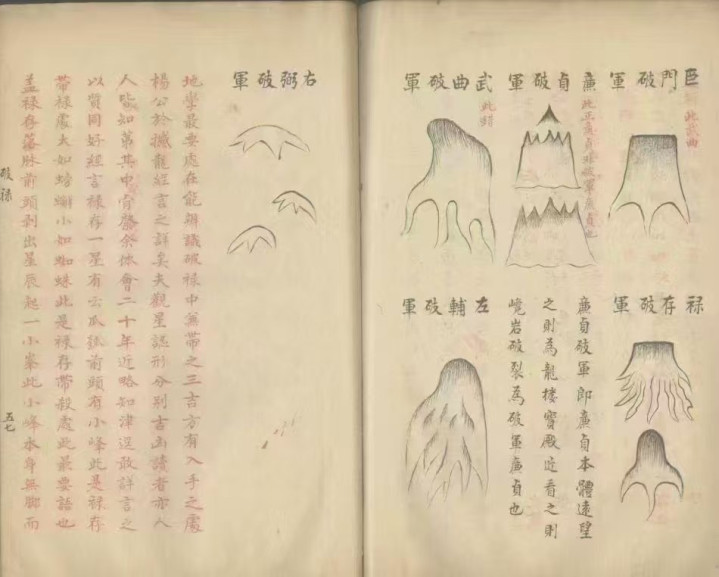 巨門破軍
此武曲
廉貞破軍
此正廉貞非破軍廉貞也
武曲破軍
祿存破軍
廉貞破軍即廉貞本體遠望
之則為龍樓寶殿近看之則
巉岩破裂為破軍廉貞也
左輔破軍
右弼破軍
地學最要處在能辨識破祿中兼帶之三吉方有入手之處
楊公於撼龍經言之詳矣夫觀星認形分別吉凶讀者亦人
人能知第其中余體會二十年近略知津逕敢詳言之
以質同好經言祿存一星有云瓜前頭有小峰此是祿存
帶祿處大如螃蠏小如蜘蛛此是祿存帶殺處此最要語也
盖祿存落脉前頭剥出星辰起一小峯此小峰本身無脚而
破祿
五七